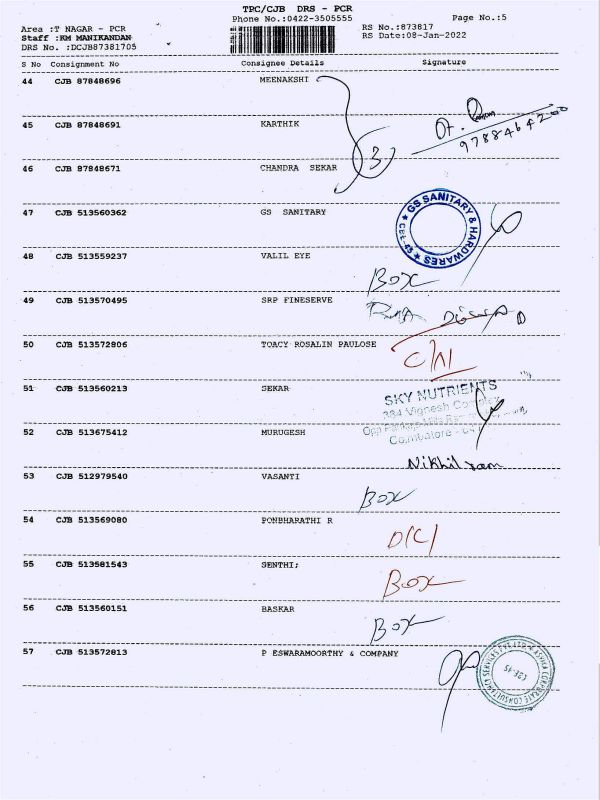 TPC/CJB DRS - PCR
Phone No.:0422-3505555
Page No.:5
Area :T NAGAR - PCR
RS No.:873817
Staff :KM MANIKANDAN
RS Date:08-Jan-2022
DRS No. :DCJB87381705
S No Consignment No Consignee Details Signature
44 CJB 87848696 MEENAKSHI
45 CJB 87848691 KARTHIK
9788464200
3
46 CJB 87848671 CHANDRA SEKAR
47 CJB 513560362 GS SANITARY
GS SANITARY & HARDWARES
CBE-45
48 CJB 513559237 VALIL EYE
BOX
49 CJB 513570495 SRP FINESERVE
50 CJB 513572806 TOACY ROSALIN PAULOSE
51 CJB 513560213 SEKAR
SKY NUTRIENTS
384 Vignesh Complex
Coimbatore
52 CJB 513675412 MURUGESH
Nikhil ram
53 CJB 512979540 VASANTI
BOX
54 CJB 513569080 PONBHARATHI R
D/C
55 CJB 513581543 SENTHI;
BOX
56 CJB 513560151 BASKAR
BOX
57 CJB 513572813 P ESWARAMOORTHY & COMPANY
CBE-45